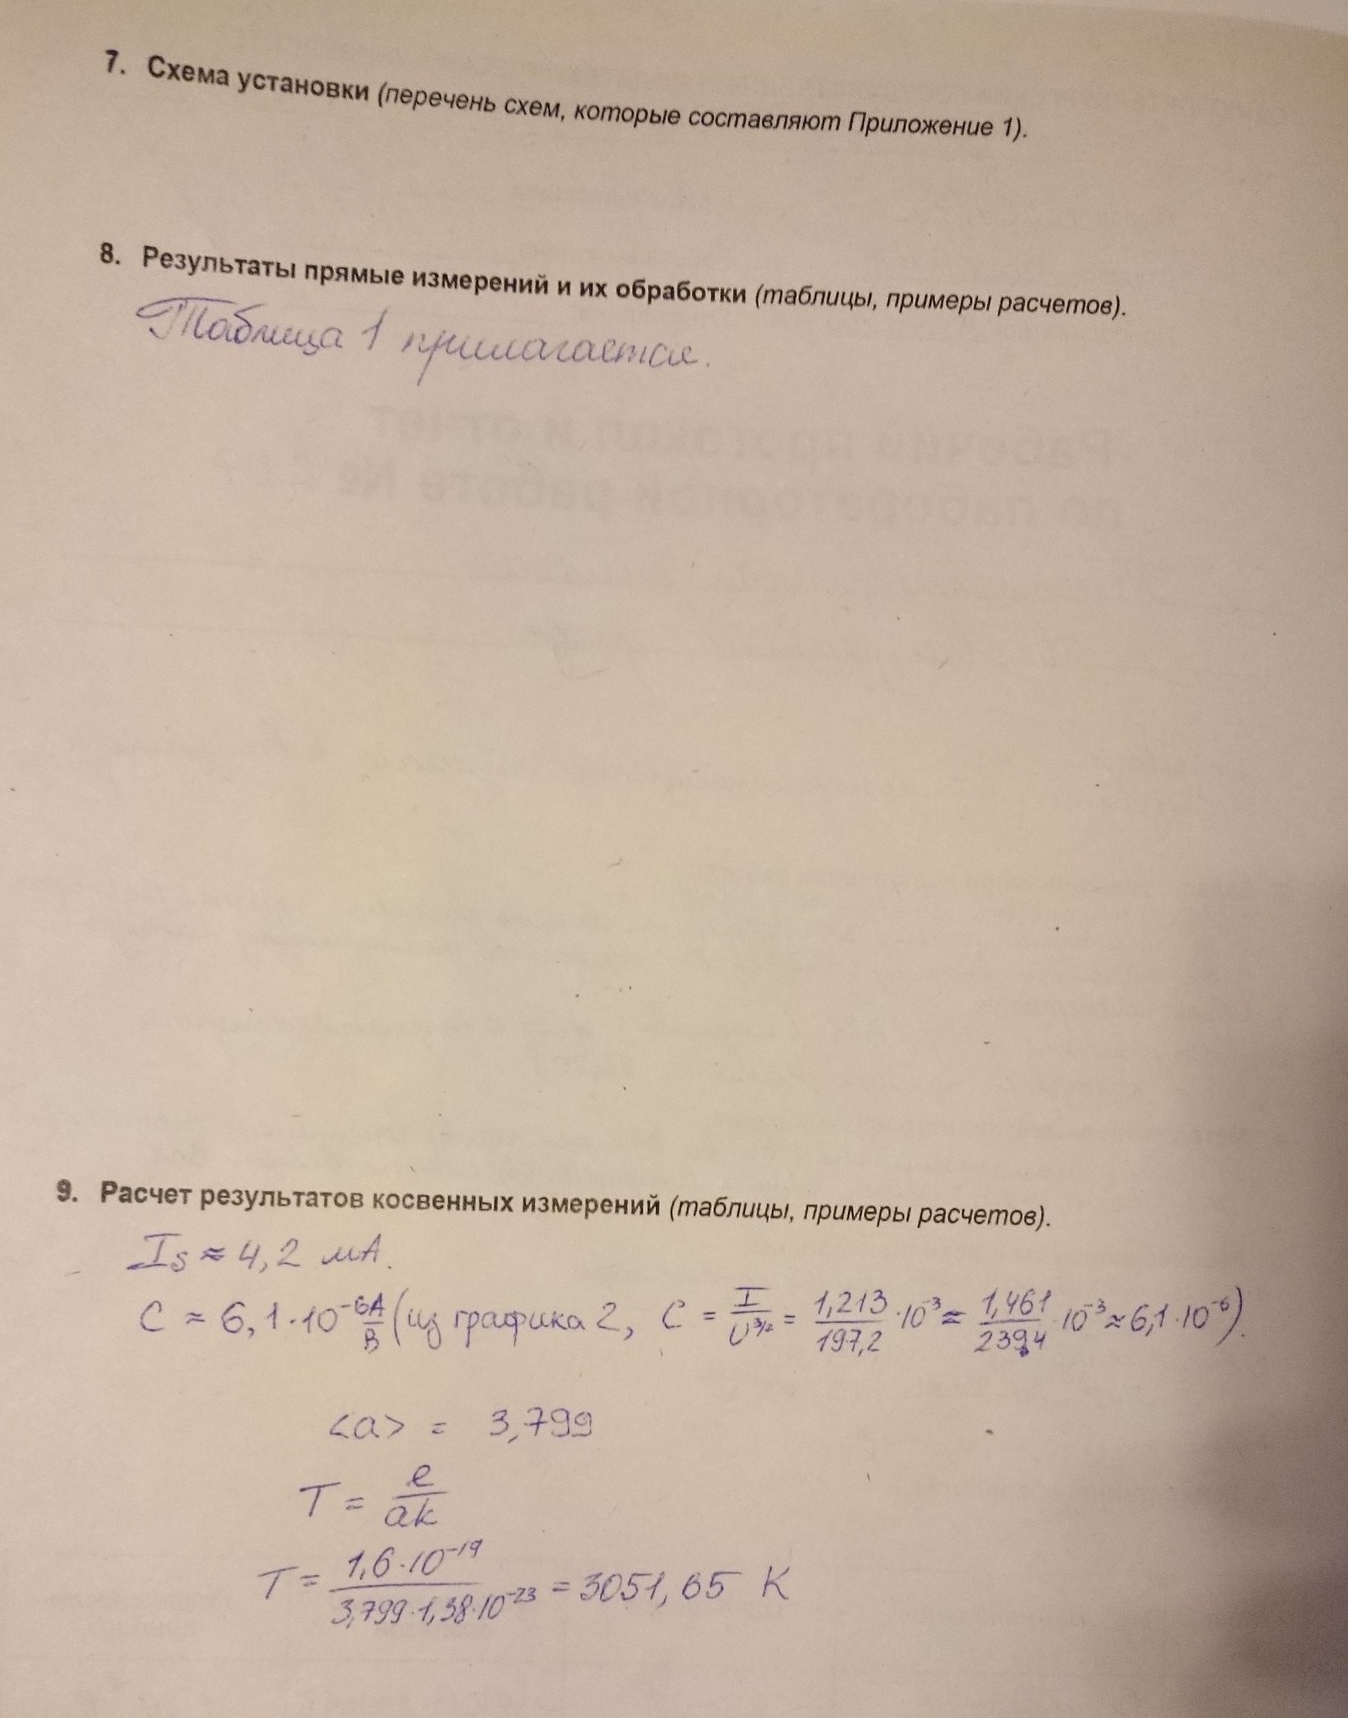 7. Схема установки (перечень схем, которые составляют Приложение 1).
8. Результаты прямые измерений и их обработки (таблицы, примеры расчетов).
Таблица 1 прилагается.
9. Расчет результатов косвенных измерений (таблицы, примеры расчетов).
Is ≈ 4,2 мА.
C ≈ 6,1·10⁻⁶ А/В (из графика 2, C = I/U^3/2 = 1,213/197,2 ·10⁻³ ≈ 1,461/239,4 ·10⁻³ ≈ 6,1·10⁻⁶).
<a> = 3,799
T = e/ak
T = 1,6·10⁻¹⁹/3,799·1,38·10⁻²³ = 3051,65 К